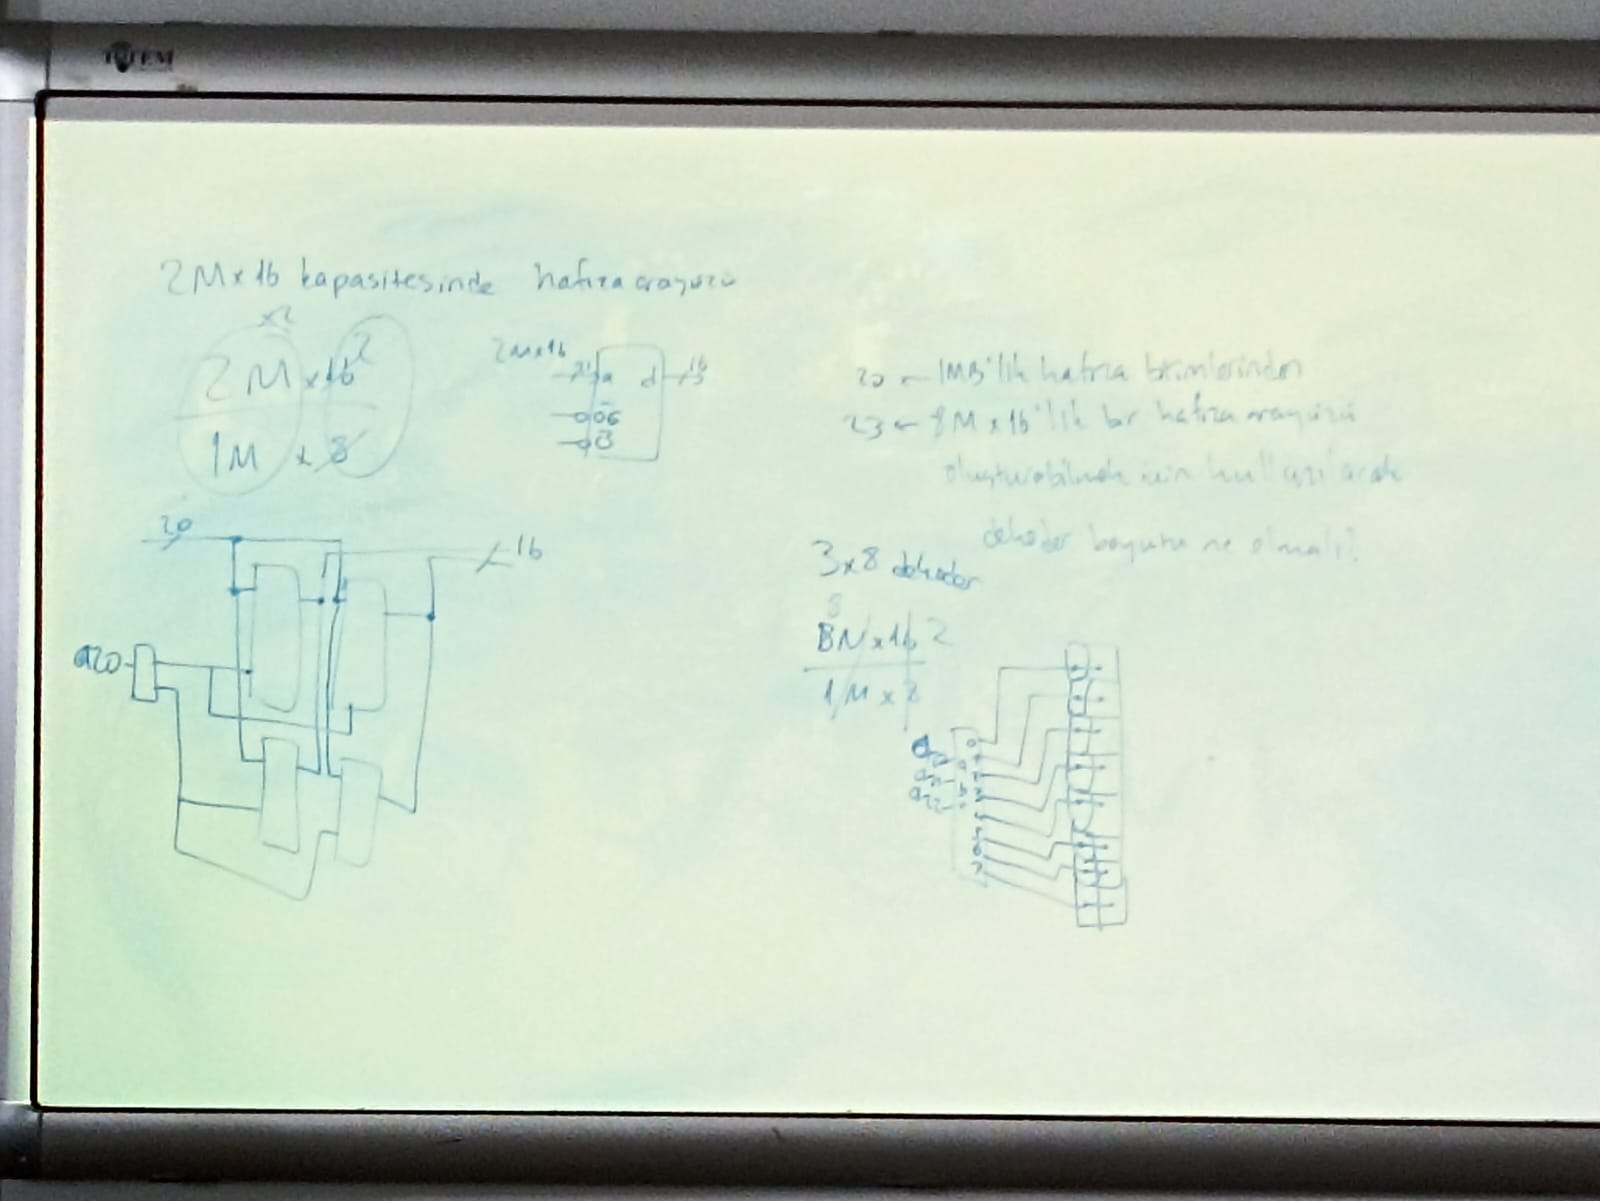 2M x 16 kapasitesinde hafıza arayüzü
x2
2M x 16 2
1M x 8
2Mx16
21 a d 16
20
16
a20
20 ← 1MB'lik hafıza birimlerinden
23 ← 8M x 16'lik bir hafıza arayüzü
oluşturabilmek için kullanılacak
dekoder boyutu ne olmalı?
3x8 dekoder
8
8M x 16 2
1M x
a22